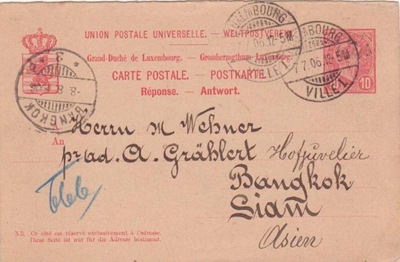 UNION POSTALE UNIVERSELLE. — WELTPOSTVEREIN.
Grand-Duché de Luxembourg. — Grossherzogthum Luxemburg.
CARTE POSTALE. — POSTKARTE.
Réponse. — Antwort.
LUXEMBOURG
7.7.06.12-5M
VILLE 1.
BOURG
7.7.06.12-5M
VILLE 1.
10
BANGKOK
An
Herrn M Wehner
pr ad. A. Grählert Hofjuvelier
Bangkok
Siam
Asien
N.B. Ce côté est réservé exclusivement à l'adresse.
Diese Seite ist nur für die Adresse bestimmt.